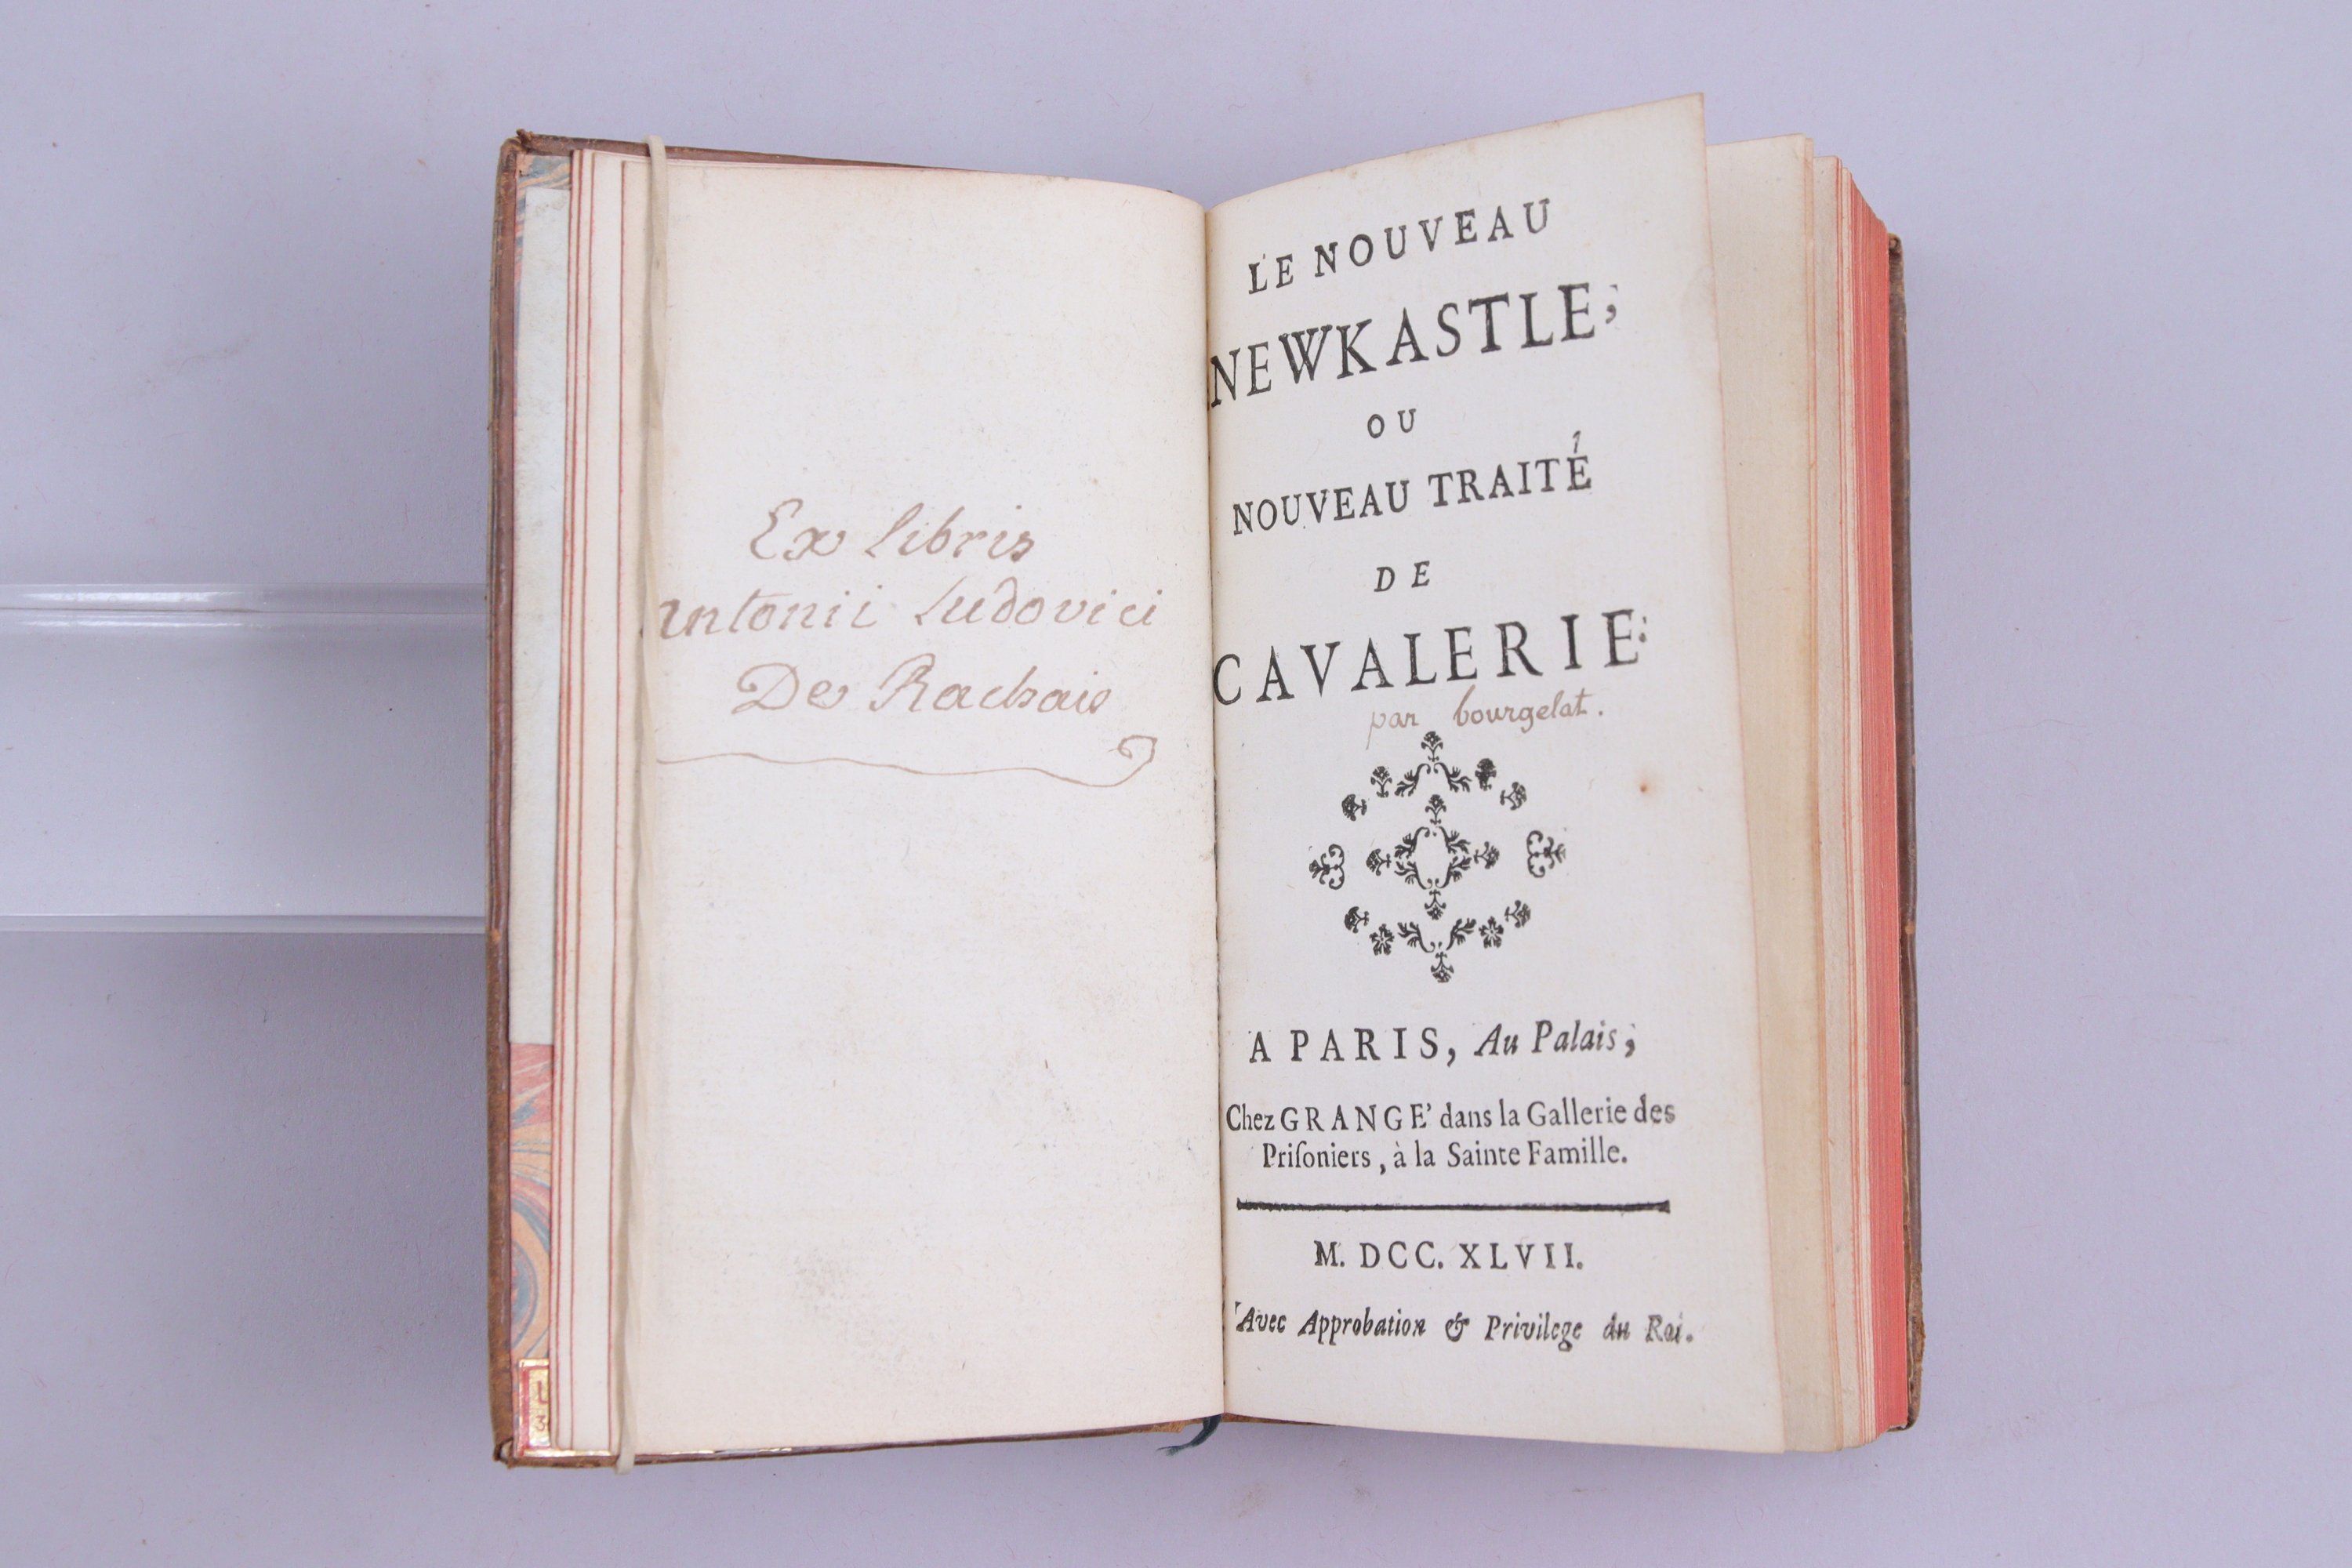 Ex libris
antonii Ludovici
De Rachais
LE NOUVEAU
NEWKASTLE,
OU
NOUVEAU TRAITÉ
DE
CAVALERIE.
par bourgelat.
A PARIS, Au Palais,
Chez GRANGE' dans la Gallerie des
Priſoniers, à la Sainte Famille.
M. DCC. XLVII.
Avec Approbation & Privilege du Roi.